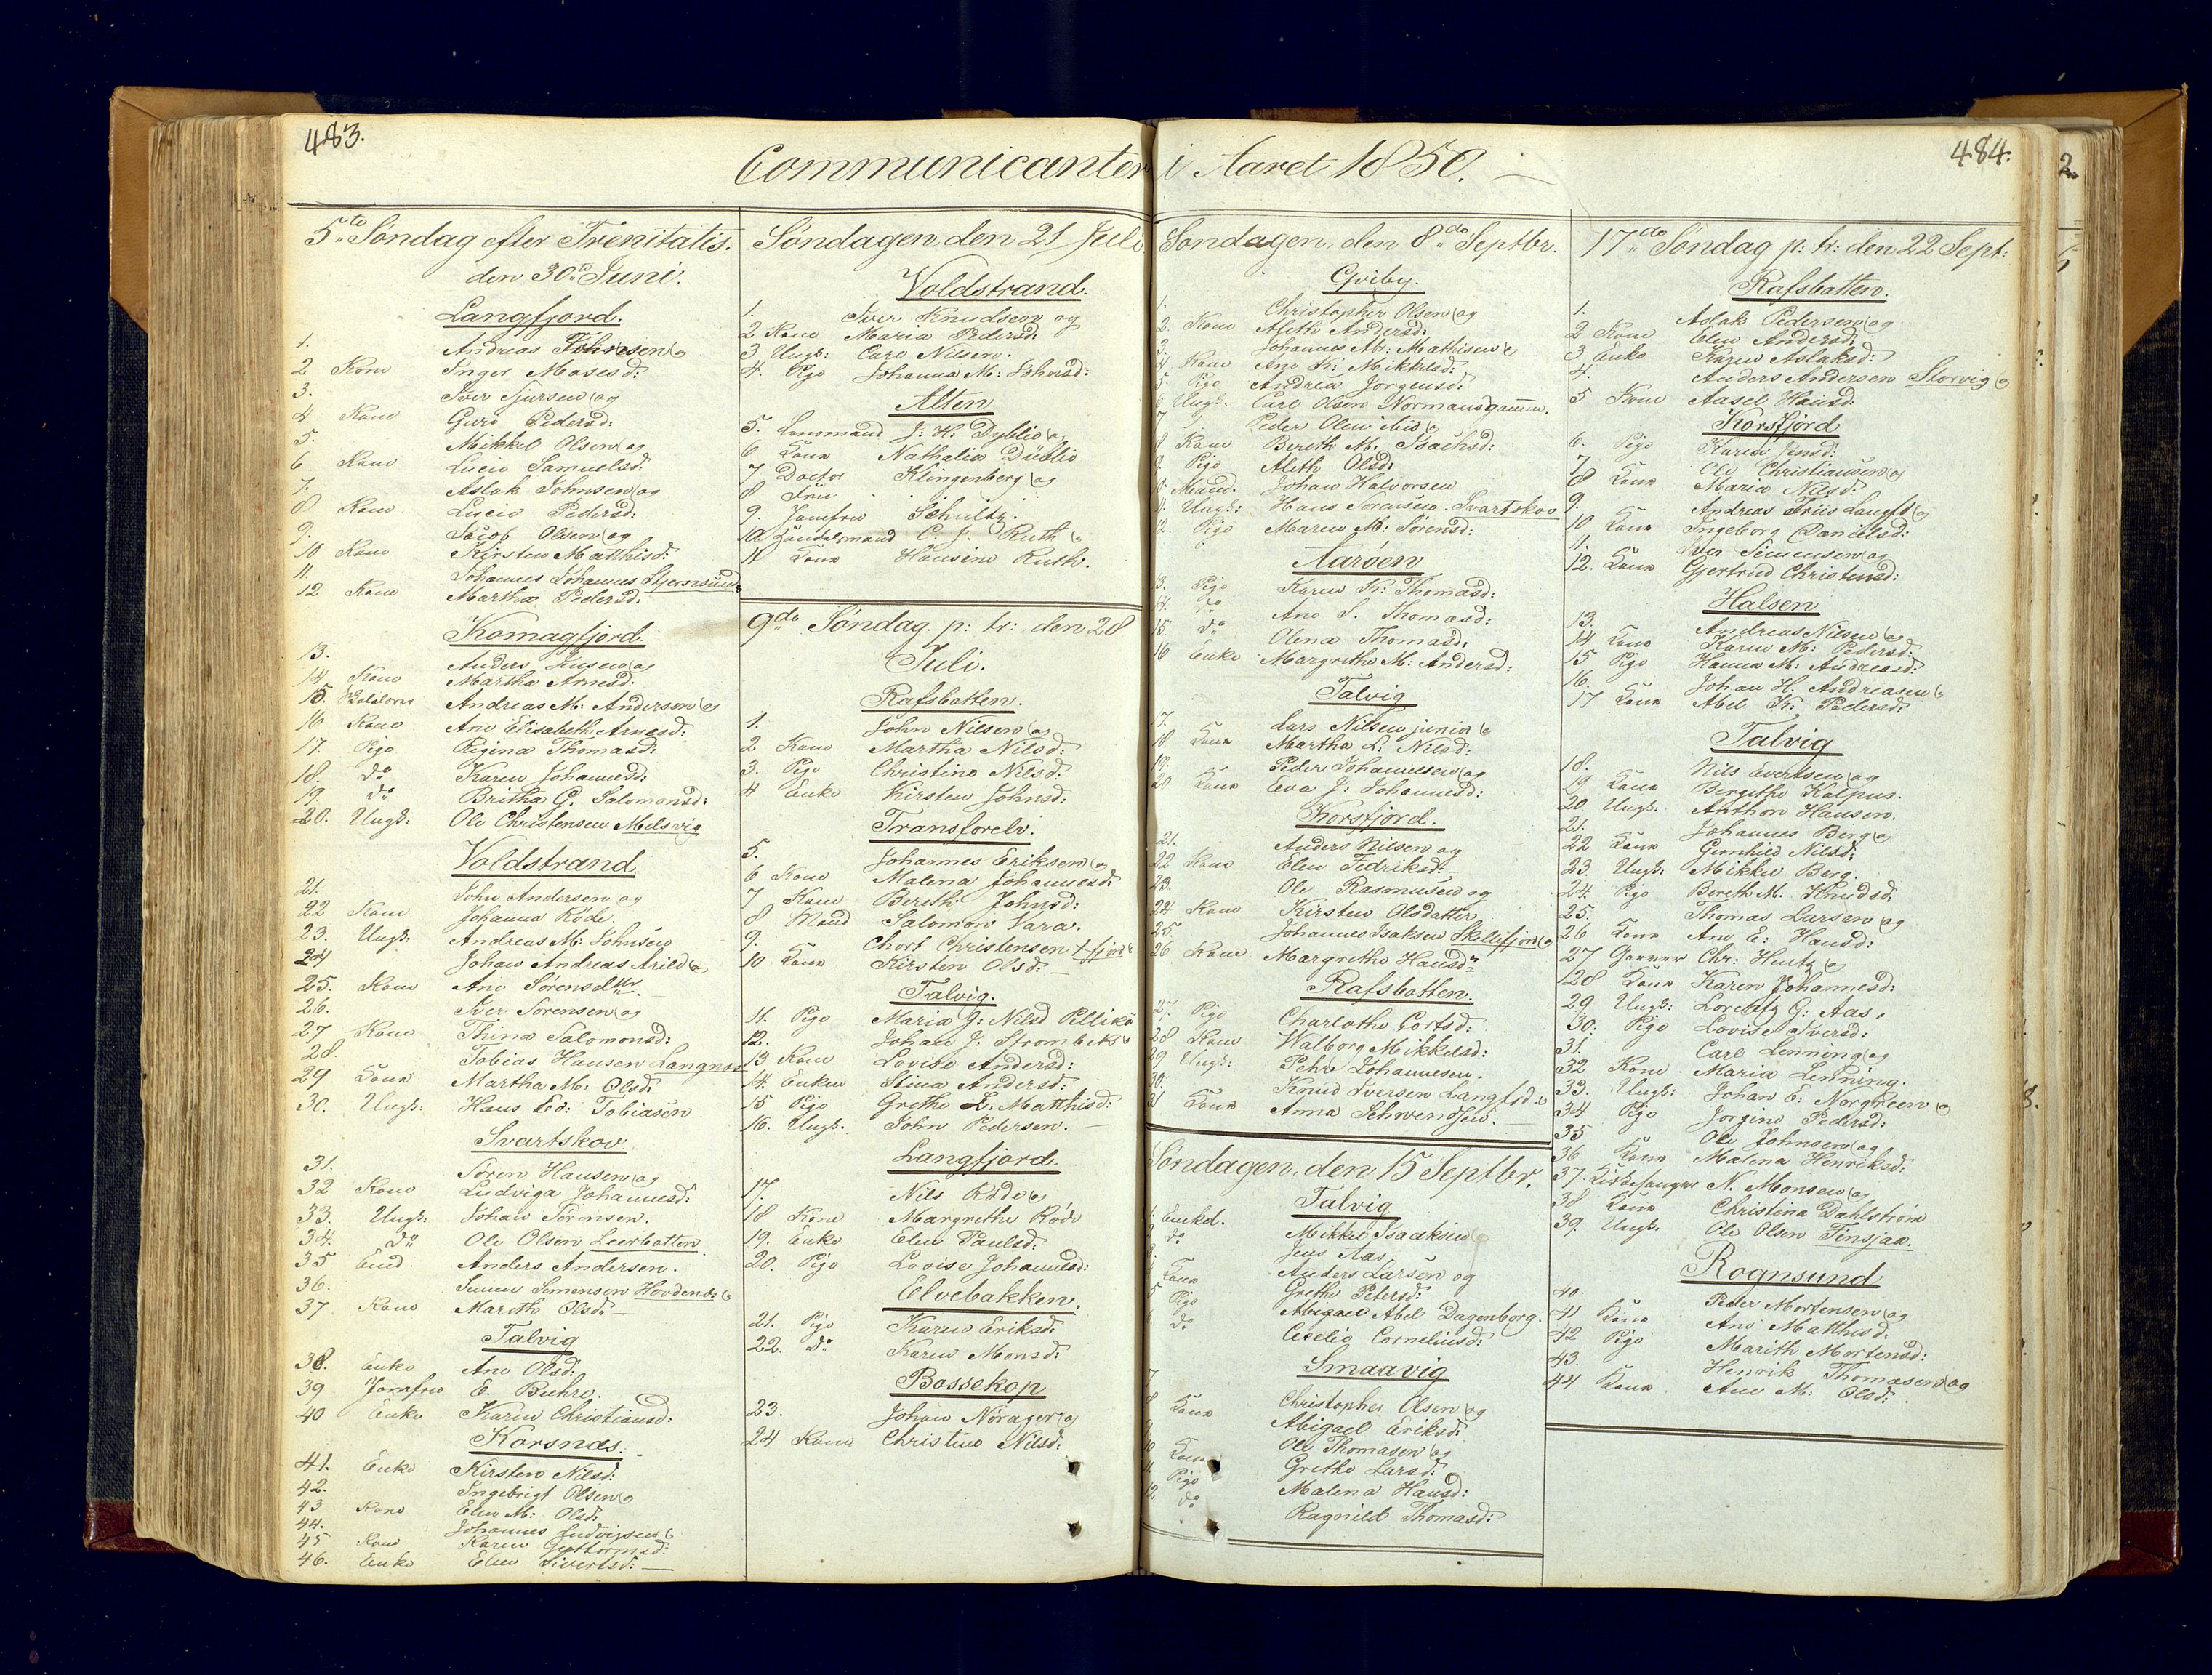 483.
Communicanter i Aaret 1850.
484.
5te Søndag efter Trenitatis.
den 30d Juni.
Langfjord.
1. Andreas Johnsen og
2 Kone Inger Mosesd:
3. Iver Sjursen og
4 Kone Guro Pedersd:
5. Mikkel Olsen og
6 Kone Lucie Samuelsd:
7. Aslak Johnsen og
8 Kone Lucie Pedersd:
9. Jacob Olsen og
10 Kone Kirsten Matthisd:
11. Johannes Johannes Stjernsund
12 Kone Martha Pedersd:
Komagfjord.
13. Anders Ansen og
14 Kone Martha Arnesd:
15. Andreas M: Andersen og
16 Kone Ane Elisabeth Arnesd:
17. Pige Regina Thomasd:
18. do Karen Johannesd:
19 do Britha G. Salomonsd:
20. Ungk: Ole Christensen Melsvig
Voldstrand.
21. John Andersen og
22 Kone Johanna Rode.
23. Ungk: Andreas M: Johnsen
24 Johan Andreas Arild og
25. Kone Ane Sørensdtr.
26. Iver Sørensen og
27 Kone Thina Salomonsd:
28. Tobias Hansen Langnæs
29 Kone Martha M. Olsd:
30. Ungk: Hans Ed: Tobiasen
Svartskov.
31. Søren Hansen og
32 Kone Ludviga Johannesd:
33. Ungk: Johan Sørensen.
34. do Ole Olsen Leerbotten.
35 Enk. Anders Andersen.
36. Simon Simonsen Hovdenes
37. Kone Marith Olsd:
Talvig
38. Enke Ane Olsd:
39 Jomfrue E. Buchre.
40 Enke Karen Christiansd:
Korsnæs.
41. Enke Kirsten Nilsd:
42. Ingebrigt Olsen og
43 Kone Elen M: Olsd:
44. Johannes Ludvigsen og
45 Kone Karen Guttormsd:
46. Enke Elen Sivertsd:
Søndagen den 21 Juli
Voldstrand.
1. Iver Knudsen og
2 Kone Maria Pedersd:
3 Ungk: Care Nilsen.
4. Pige Johanna M: Johnsd:
Alten
5. Lensmand J: H: Dyblie og
6 Kone Nathalia Düblie
7 Doctor Klingenberg og
8 Frue
9. Jomfrue Schultz.
10 Handelsmand C. J. Ruth og
11 Kone Hansine Ruth.
9de Søndag p: tr: den 28
Juli.
Rafsbotten.
1. John Nilsen og
2 Kone Martha Nilsd:
3. Pige Christine Nilsd:
4 Enke Kirsten Johnsd:
Transforelv.
5. Johannes Eriksen og
6 Kone Malena Johannesd:
7 Kone Bereth Johnsd:
8 Mand Salomon Vara.
9. Chort Christensen
10 Kone Kirsten Olsd:
Talvig.
11. Pige Maria J: Nilsd Pellikä
12. Johan J: Strombek og
13 Kone Lovise Andersd:
14. Enken Stina Andersd:
15 Pige Grethe L. Matthisd:
16. Ungk. John Pedersen.
Langfjord.
17. Nils Rode og
18 Kone Margrethe Rode
19. Enke Elen Paulsd:
20. Pige Lovise Johannesd:
Elvebakken.
21. Pige Karen Eriksd:
22. do Karen Monsd:
Bossekop
23. Johan Norager og
24 Kone Christine Nilsd:
Søndagen, den 8de Septbr.
Qviby.
1. Christopher Olsen og
2. Kone Aleth Andersd:
3. Johannes Ab: Mathisen og
4 Kone Ane K: Mikkelsd:
5 Pige Andrea Jørgensd:
6 Ungk. Carl Olsen Normansgamm.
7 Peder Olsen ibid og
8 Kone Bereth M: Isachsd:
9. Pige Aleth Olsd:
10 Mand. Johan Halvorsen
11. Ungk: Hans Sørensen. Svartskov
12. Pige Maren M: Sørensd:
Aarøen
13. Pige Karen K: Thomasd:
14. do Ane S. Thomasd:
15. do Olena Thomasd.
16 Enke Margrethe M: Andersd:
Talvig
17. Lars Nilsen junior og
18. Kone Martha L: Nilsd:
19. Peder Johannesen og
20 Kone Eva J: Johannesd:
Korsfjord.
21. Anders Nilsen og
22 Kone Elen Fedriksd:
23. Ole Rasmusen og
24 Kone Kirsten Olsdatter
25. Johannes Isaksen Skillefjord og
26 Kone Margrethe Hansd:
Rafsbotten.
27. Pige Charlothe Cortsd:
28 Kone Walborg Mikkelsd:
29 Ungk: Pehr Johannesen.
30. Knud Iversen Langfd og
31 Kone Anna Schwendsen.
Søndagen, den 15 Septbr.
Talvig
1. Enked. Mikkel Isaaksen
2 do Jens Aas
3. Anders Larsen og
4 Kone Grethe Petersd:
5 Pige Abigael Abel Dagenborg.
6. do Cecelie Corneliusd:
Smaavig
7 Christopher Olsen og
8 Kone Abigael Eriksd:
9 Ole Thomasen og
10 Kone Grethe Larsd:
11 Pige Malena Hansd:
12 do Ragnild Thomasd:
17de Søndag p: tr: den 22 Sept:
Rafsbotten.
1. Aslak Pedersen og
2 Kone Elen Andersd:
3 Enke Karen Aslaksd:
4. Anders Andersen Storvig og
5 Kone Aasel Hansd:
Korsfjord
6. Pige Karen Jensd:
7. Ole Christiansen og
8 Kone Maria Nilsd:
9. Andreas Friis Langfd og
10 Kone Ingeborg Danielsd:
11. Iver Simensen og
12. Kone Gjertrud Christensd:
Halsen
13. Andreas Nilsen og
14 Kone Karen M: Pedersd:
15 Pige Hanna M: Andreasd:
16. Johan H. Andreasen og
17 Kone Abel K: Pedersd:
Talvig
18. Nils Evertsen og
19 Kone Bergithe Kalpus.
20 Ungk: Anthon Hansen.
21. Johannes Berg og
22 Kone Gunhild Nilsd:
23. Ungk: Mikkel Berg.
24. Pige Bereth M: Knudsd.
25. Thomas Larsen og
26 Kone Ane E: Hansd:
27 Garver Chr: Hentz og
128 Kone Karen Johannesd:
29 Ungk: Lorentz G: Aas.
30. Pige Lovise Iversd:
31. Carl Lenning og
32 Kone Maria Lenning.
33. Ungk: Johan E: Norgreen
34 Pige Jorgine Pedersd:
35 Ole Johnsen og
36 Kone Malena Henriksd:
37. Kirkesanger N. Monsen og
38 Kone Christina Dahlstrøm
39. Ungk. Ole Olsen Tinsjaa.
Rognsund
40. Peder Mortensen og
41 Kone Ane Matthisd:
42 Pige Marith Mortensd:
43. Henrik Thomasen og
44 Kone Ane M: Olsd: